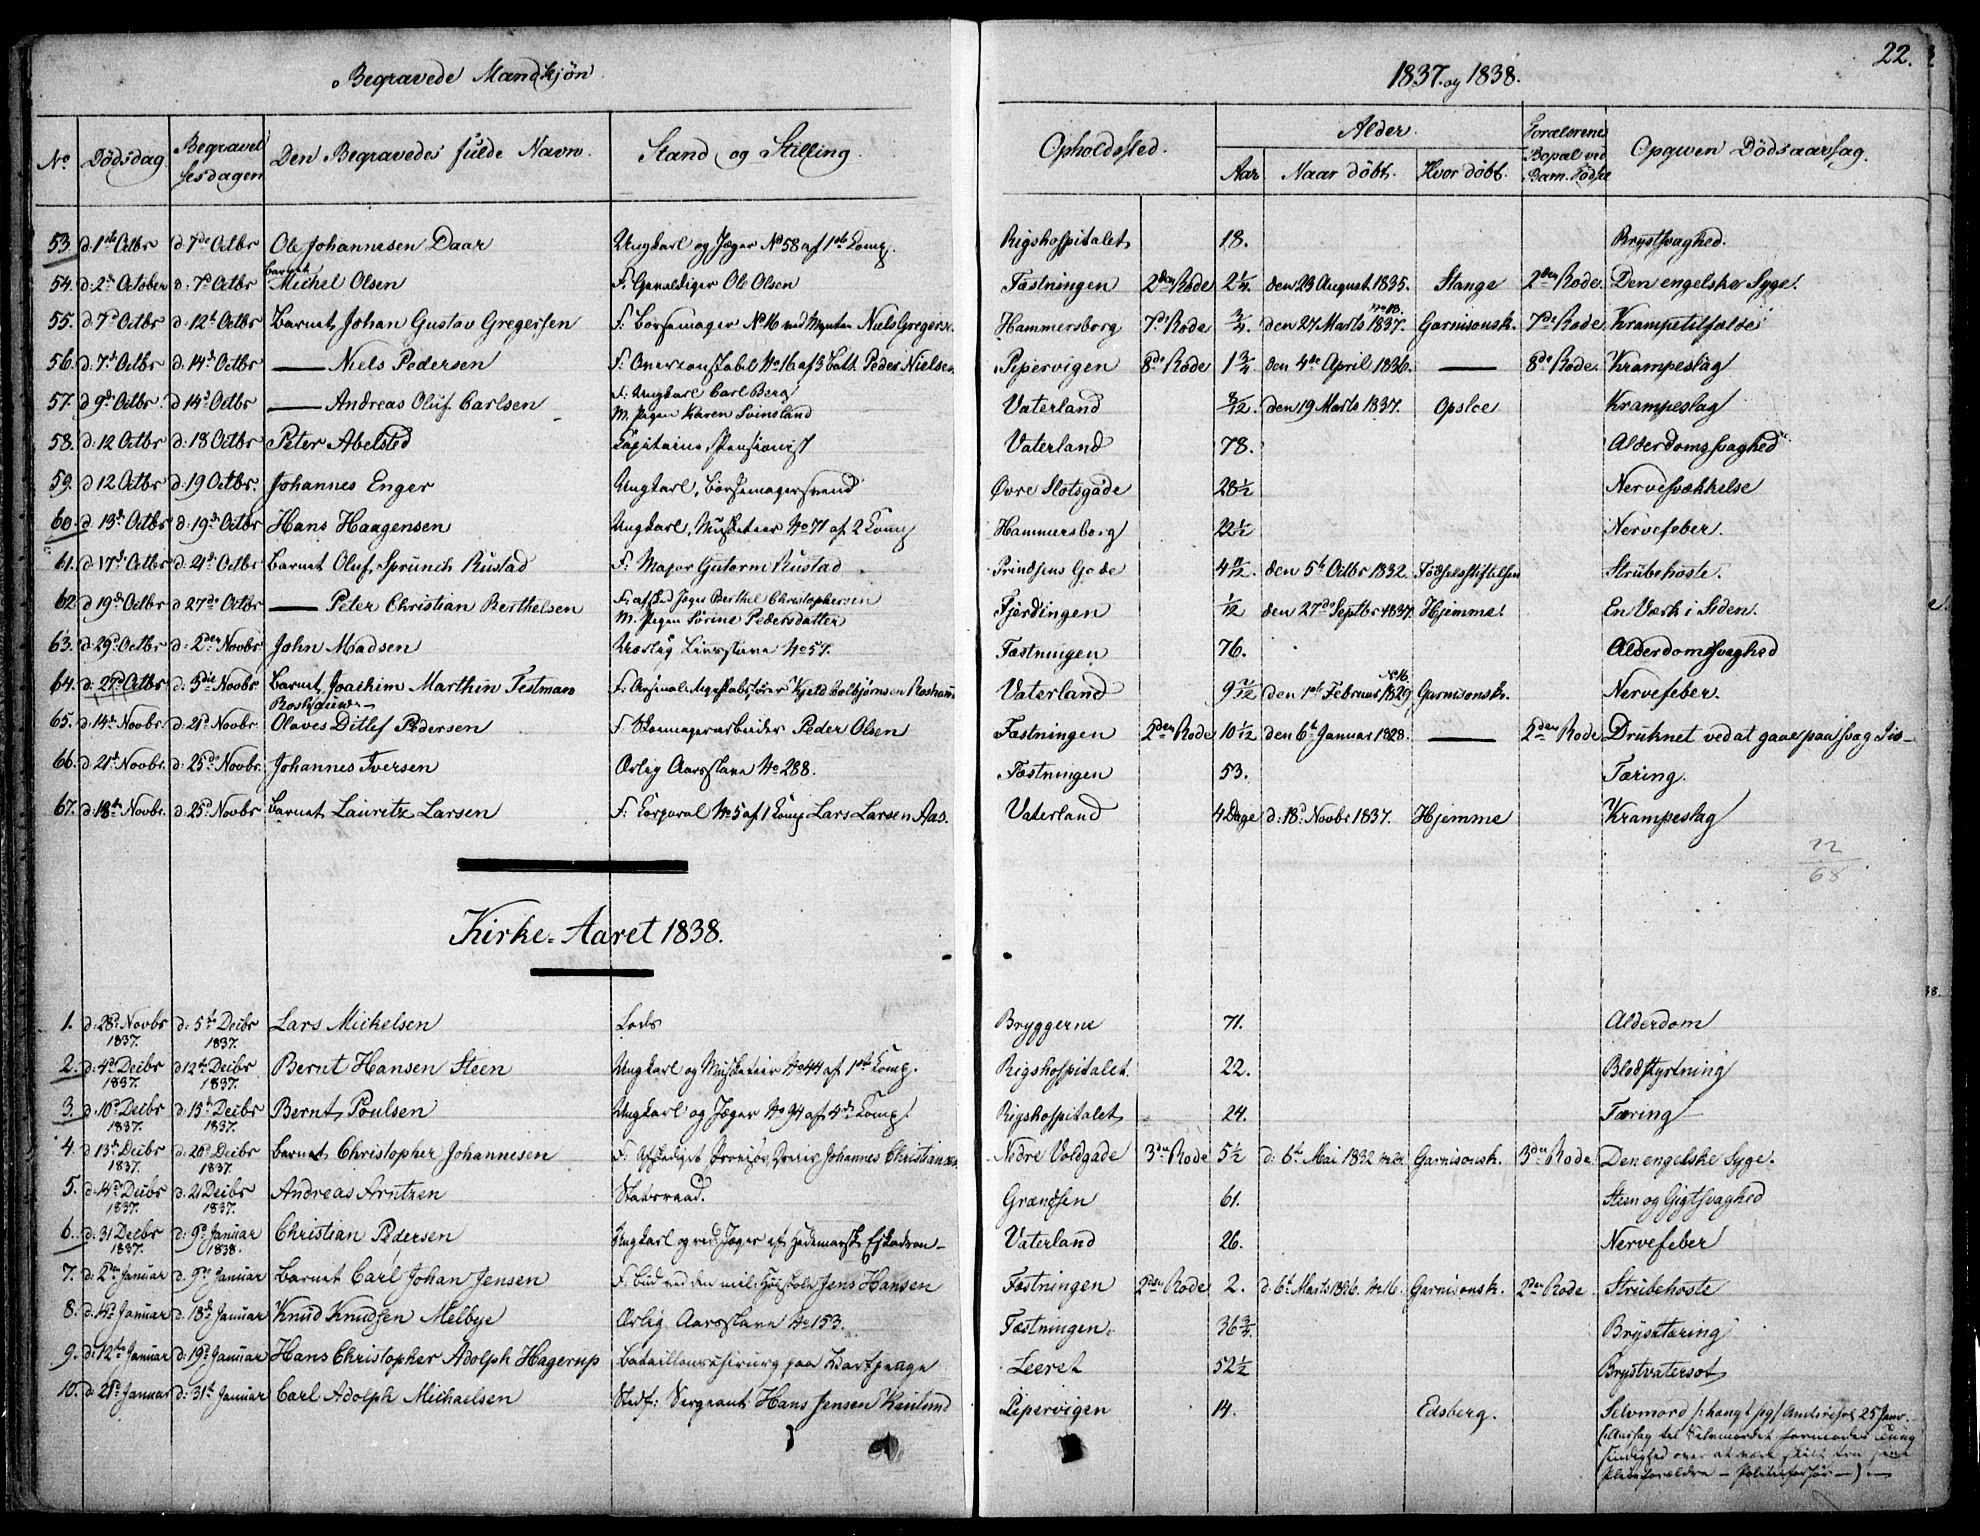 Begravede Mandkjøn
1837. og 1838.
22.
No Dødsdag Begravelsesdagen Den Begravedes fulde Navn. Stand og Stilling. Opholdssted. Alder. Aar Naar døbt. Hvor døbt. Forældrenes Bopæl ved Barn. Fødsel Opgiven Dødsaarsag.
53. d: 1ste Octbr d: 7de Octbr Ole Johannesen Daar Ungkarl og Jæger No 58 af 1ste Comp. Rigshospitalet 18. Brystsvaghed.
54. d: 2d October d: 7d Octbr Barnet Michel Olsen F: Gevaldiger Ole Olsen Fæstningen 2den Rode 2 1/4. den 23 August 1835. Stange 2den Rode. Den engelske Syge.
55. d: 7d Octbr d: 12t Octbr Barnet Johan Gustav Gregersen F: Børsemager No 16 ved Mynten Niels Gregers. Hammersborg 7de Rode 3/4. den 27 Marts 1837. No 18. Garnisonsk. 7de Rode Krampetilfælde
56. d: 7d Octbr d: 14d Octbr — Niels Pedersen F: Overconstabel No 16 af 3 Batt. Peder Nielsen Pipervigen 8de Rode 1 3/4 den 4de April 1836. — 8de Rode. Krampeslag
57. d: 9d Octbr. d 14d Octbr — Andreas Oluf Carlsen F: Ungkarl Carl Berg M. Pigen Karen Svinsland Vaterland 3/12. den 19 Marts 1837. Opsloe Krampeslag
58. d: 12 Octbr d: 18 Octbr Peter Abelsted Capitaine, Pensionist Vaterland 78. Alderdomssvaghed
59. d 12 Octbr d: 19 Octbr. Johannes Enger Ungkarl, Børsemagersvend Øvre Slotsgade 28 1/2 Nervesvækkelse
60. d 13d Octbr d: 19d Octbr Hans Haagensen Ungkarl, Musketeer No 71 af 2 Comp Hammersborg 22 1/2 Nervefeber.
61. d 17d Octbr d: 21d Octbr Barnet Oluf Sprunck Rustad F: Major Gutorm Rustad Prindsens Gade 4 den 5t Octbr 1832. Fødselsstiftelsen Strubehoste.
62 d 19d Octbr d: 27de Octbr — Peter Christian Berthelsen F: afsked Jæger Berthel Christophersen M. Pigen Sørine Pedersdatter Fjerdingen 1/12 den 27de Septbr 1837. Hjemme. En Værk i Siden.
63. d: 29d Octbr d: 2den Novbr John Madsen Livsslave No 57. Fæstningen 76. Alderdomssvaghed
64. d: 27d Octbr d: 3die Novbr Barnet Joachim Marthin Testman F: Kjeld Colbjørnsen Fæstningen Vaterland 9 den 1ste Februar 1829. No 16. Garnisonsk. Nervefeber.
65. d: 14de Novbr. d: 21d Novbr. Olaves Ditlef Pedersen F. Skomagerarbeider Peder Olsen Fæstningen 2den Rode 10 1/12 den 6t Januar 1828. — 2den Rode Druknet ved at gaae paa svag Iis
66. d: 21d Novbr. d: 25d Novbr. Johannes Iversen Ærlig Aarsslave No 288. Fæstningen 53. Tæring.
67. d: 18de Novbr. d: 25d Novbr Barnet Lauritz Larsen F: Corporal No 5 af 1 Comp Lars Larsen Aas. Vaterland 4 Dage d: 18d Novbr 1837. Hjemme Krampeslag
22
68
Kirke-Aaret 1838.
1. d: 28d Novbr 1837. d: 5te Decbr 1837. Lars Michelsen Lods Bryggerne 71. Alderdom
2. d: 4d Decbr 1837. d 12te Decbr 1837. Bernt Hansen Steen Ungkarl og Musketeer No 44 af 1ste Comp. Rigshospitalet. 22. Blodstyrtning
3. d: 10d Decbr 1837. d: 15te Decbr 1837. Bernt Poulsen Ungkarl og Jæger No 94 af 4de Comp. Rigshospitalet 24. Tæring
4. d 13de Decbr 1837. d: 20d Decbr 1837. Barnet Christopher Johannesen F: Afskediget Johannes Christiansen Nedre Voldgade 3die Rode 5 1/2 d: 6te Mai 1832 Garnisonsk. 3die Rode. Den engelske Syge.
5. d: 14de Decbr 1837. d: 21 Decbr 1837. Andreas Arntzen Statsraad. Grændsen 61. Steen og Gigtsvaghed
6. d: 31 Decbr 1837. d: 9d Januar 1838. Christian Pedersen Ungkarl og rid. Jæger af Hedemarske Eskadron Vaterland 26. Nervefeber
7. d: 2den Januar d: 9de Januar Barnet Carl Johan Jensen F: Bud ved den mil: Høiskole Jens Hansen Fæstningen 2den Rode 2. d: 6t Marts 1836. No 16. Garnisonsk. 2den Rode. Strubehoste
8. d: 14d Januar d: 18de Januar Knud Knudsen Melbye Ærlig Aarsslave No 153. Fæstningen. 36 3/4. Brysttæring
9. d: 12te Januar d: 19d Januar Hans Christopher Adolph Hagerup Bataillonschirurg paa Vartpenge Leeret 52 1/2 Brystvatersot
10. d: 21d Januar d: 31te Januar Carl Adolph Michaelsen Stedf: Sergeant Hans Jensen Pipervigen 14. Edsberg. Selvmord (: hængt sig)
Aarsag til Selvmordet formodes Tungsindighed over at være skilt fra sine
Pleieforældre — Politieforhør —) —